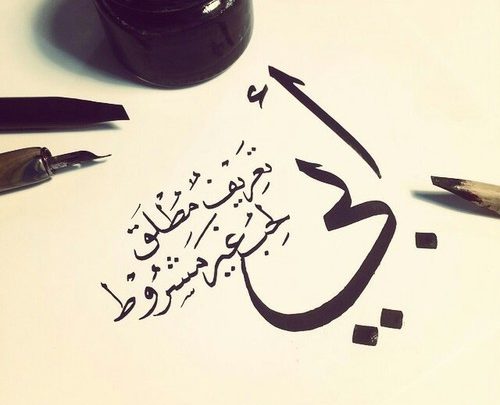 أبي
تعريف مُطْلق
لحب غير مشروط